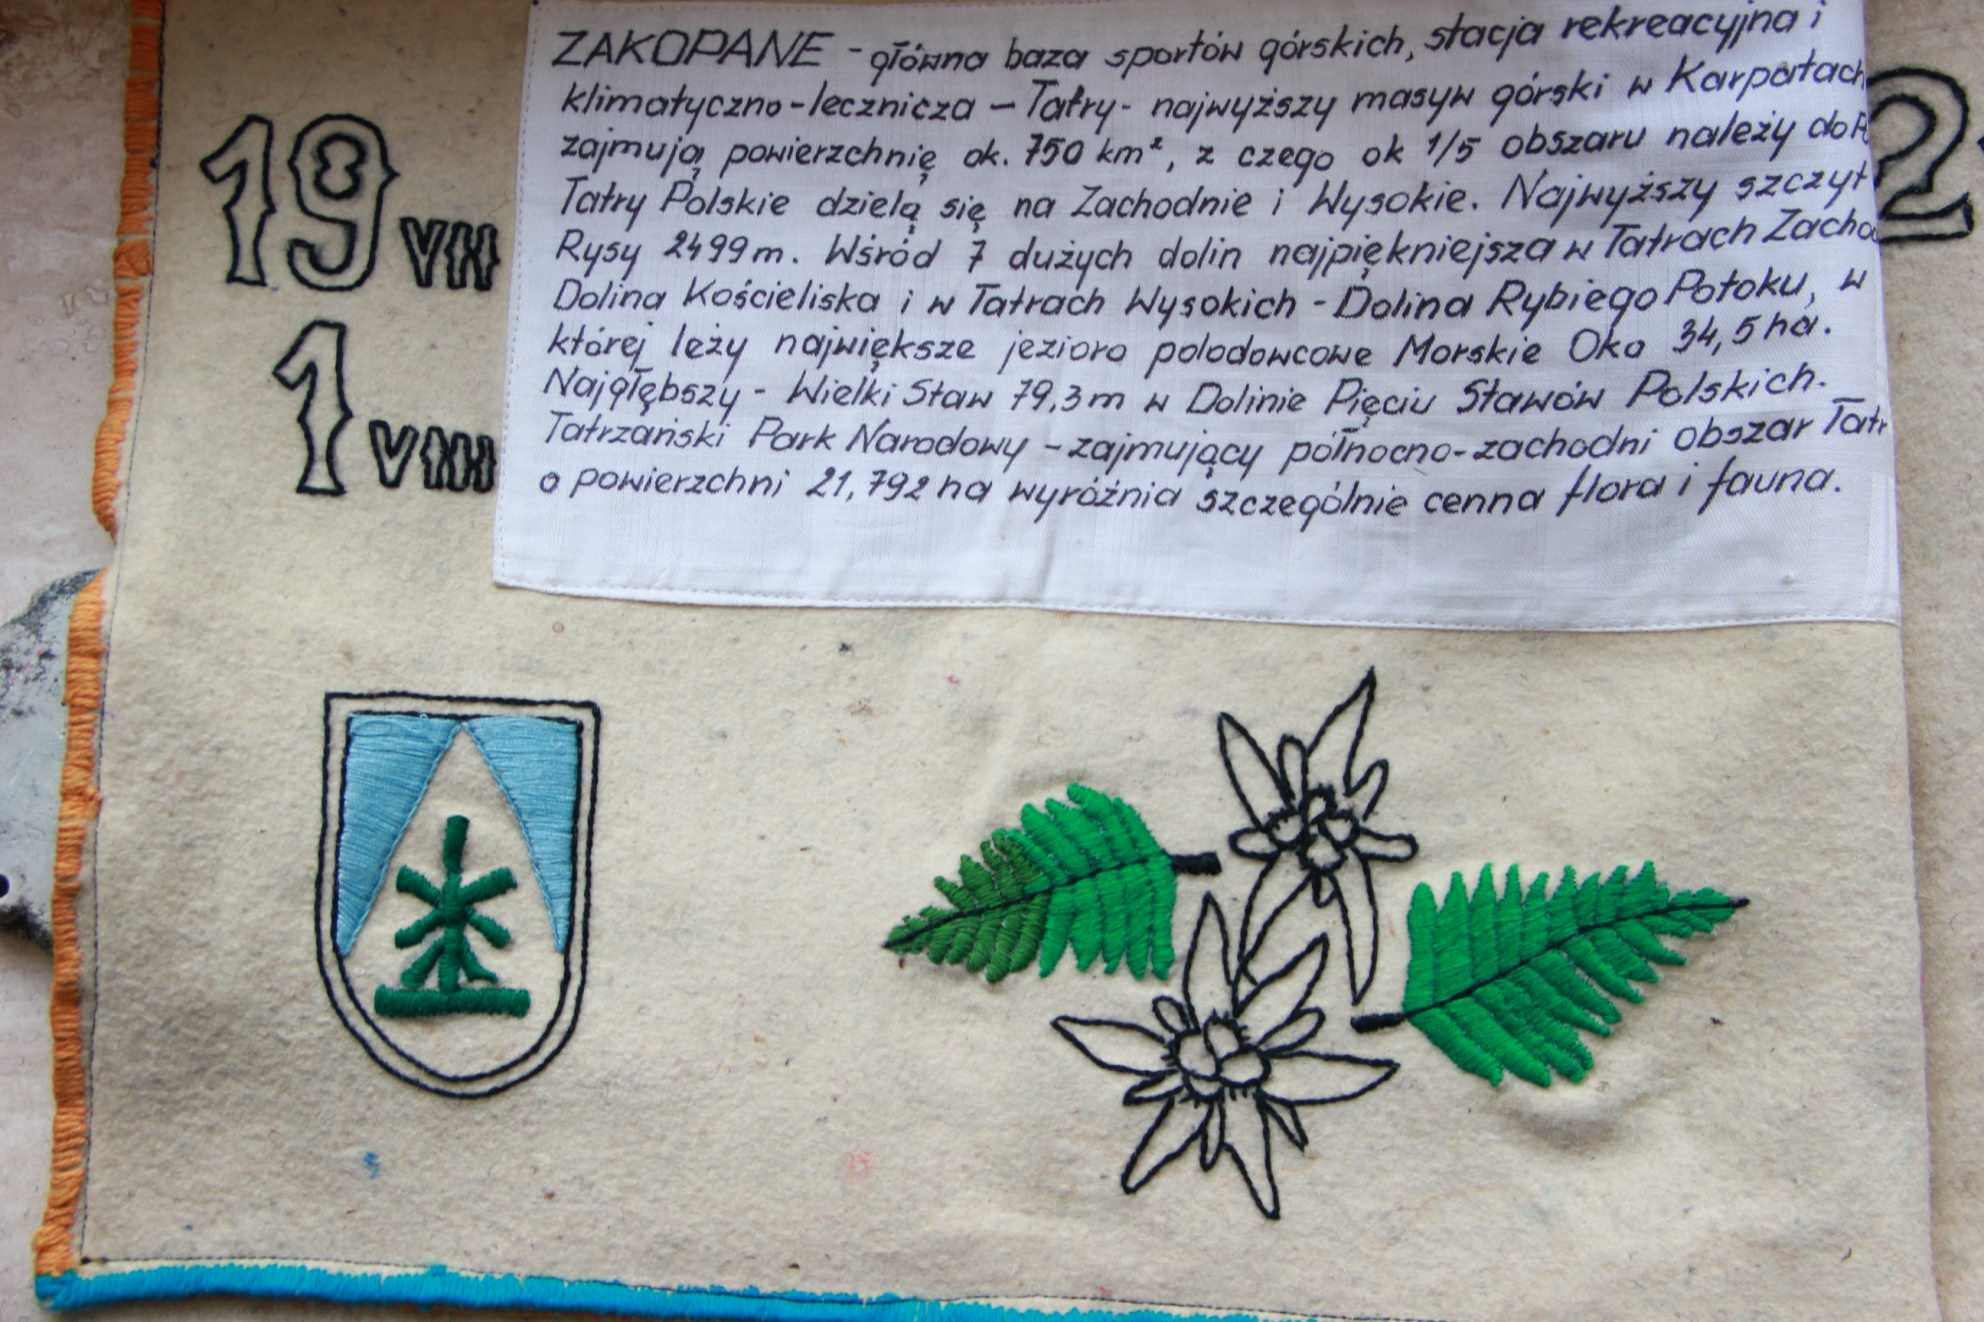 ZAKOPANE - główna baza sportów górskich, stacja rekreacyjna i
klimatyczno-lecznicza - Tatry - najwyższy masyw górski w Karpatach
zajmują powierzchnię ok. 750 km², z czego ok 1/5 obszaru należy do
Tatry Polskie dzielą się na Zachodnie i Wysokie. Najwyższy szczyt
Rysy 2499m. Wśród 7 dużych dolin najpiękniejsza w Tatrach
Dolina Kościeliska i w Tatrach Wysokich - Dolina Rybiego Potoku, w
której leży największe jezioro polodowcowe Morskie Oko 34,5 ha.
Najgłębszy - Wielki Staw 79,3m w Dolinie Pięciu Stawów Polskich.
Tatrzański Park Narodowy - zajmujący północno-zachodni obszar
o powierzchni 21,792 ha wyróżnia szczególnie cenna flora i fauna.
19 VII
1 VIII
2